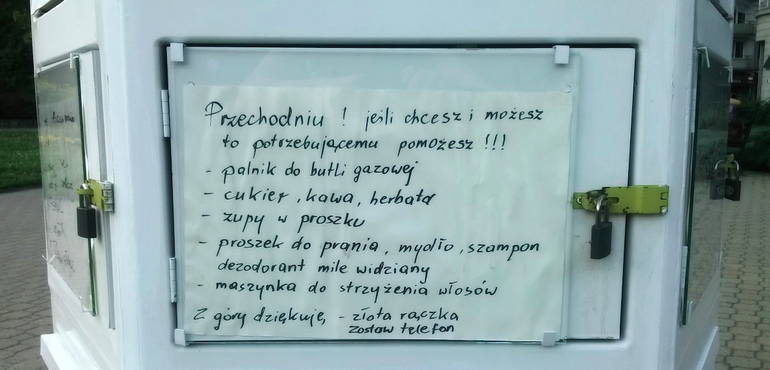 Przechodniu ! jeśli chcesz i możesz
to potrzebującemu pomożesz !!!
- palnik do butli gazowej
- cukier, kawa, herbata
- zupy w proszku
- proszek do prania, mydło, szampon
dezodorant mile widziany
- maszynka do strzyżenia włosów
Z góry dziękuję, - złota rączka
zostaw telefon